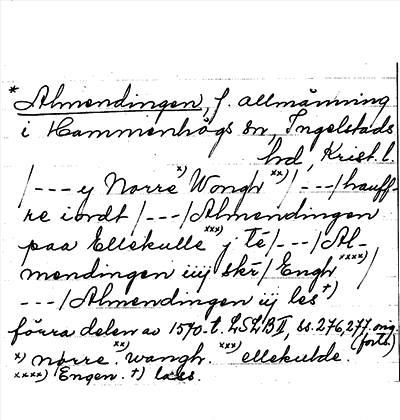 *Almendingen, f. allmänning
i Hammenhögs sn, Ingelstads
hd, Krist. l.
/--- ij Norre x) Wongh xx)/---/hauff-
re iordt/---/Almendingen
paa Ellekulle xxx) j te/---/Al-
mendingen iiij skr/Engh xxxx)/
---/Almendingen iij les +)
förra delen av 1570-t. LSLB II, ss. 276, 277. orig.
(forts.)
x) nørre. xx) wangh. xxx) ellekulde.
xxxx) Engen. +) laes.